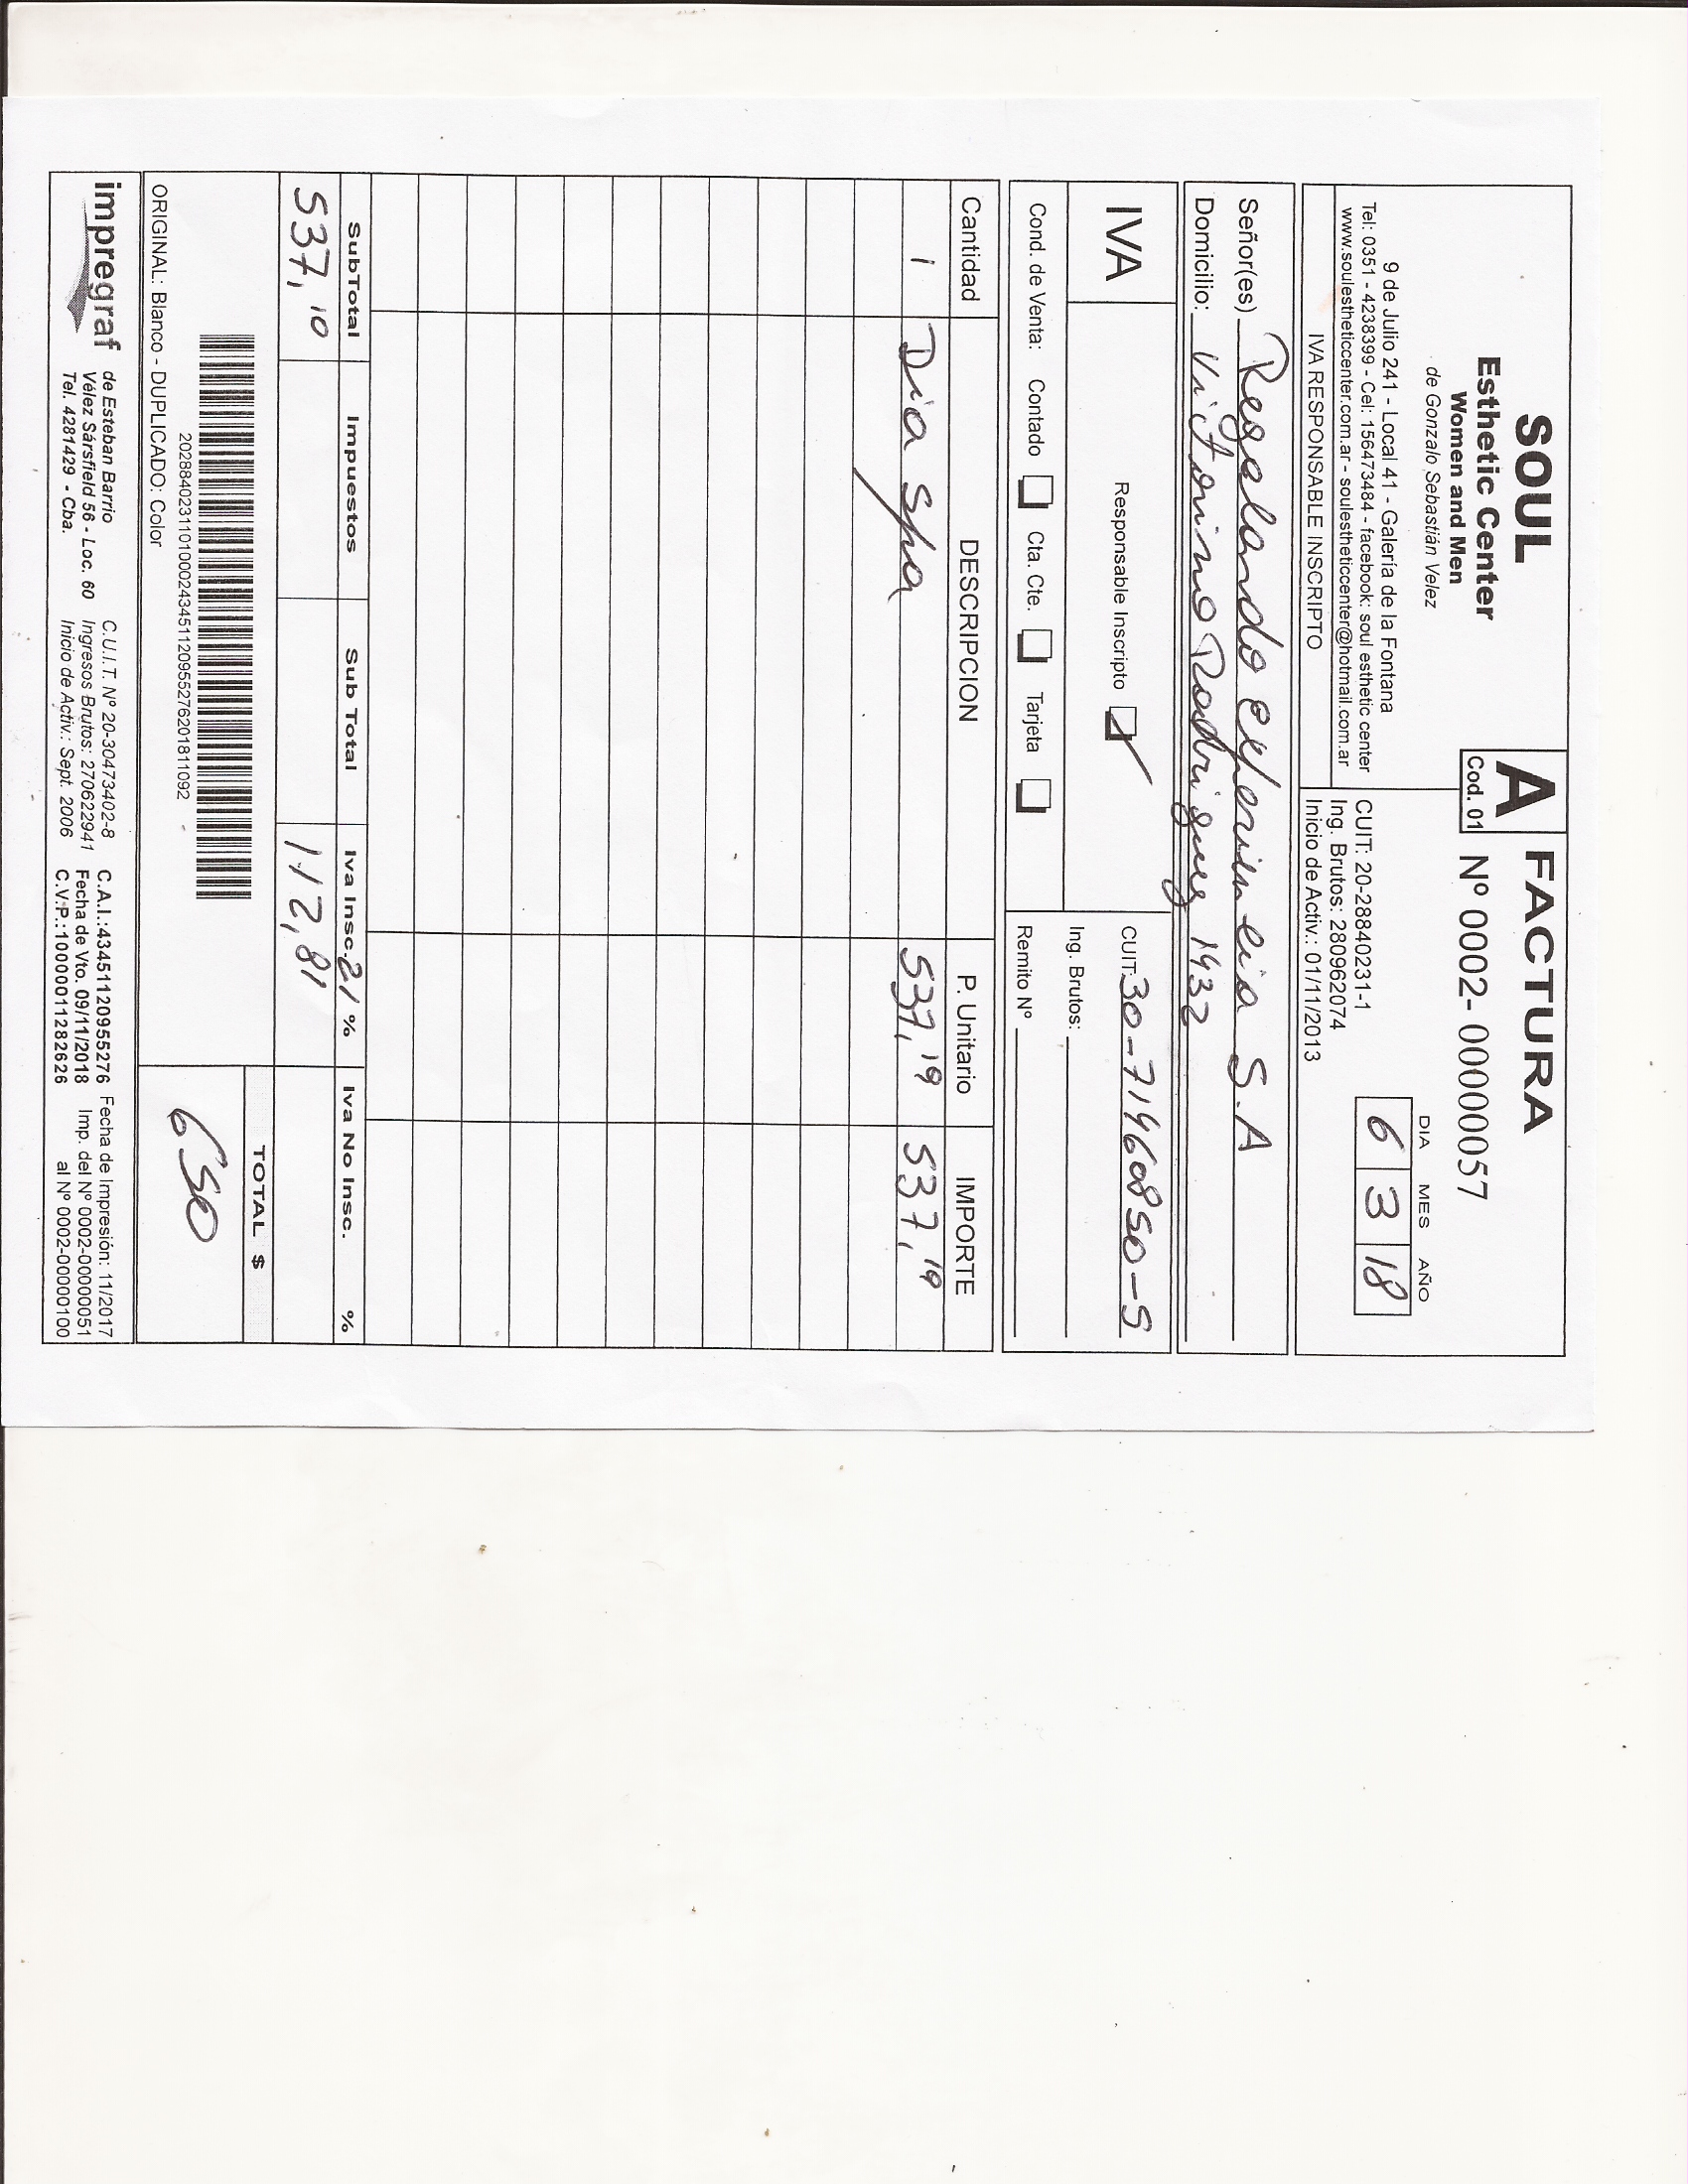 SOUL
Esthetic Center
Women and Men
de Gonzalo Sebastián Velez
9 de Julio 241 - Local 41 - Galería de la Fontana
Tel: 0351 - 4238399 - Cel: 156473484 - facebook: soul esthetic center
www.soulestheticcenter.com.ar - soulestheticcenter@hotmail.com.ar
IVA RESPONSABLE INSCRIPTO
A
Cod. 01
FACTURA
Nº 0002- 00000057
DIA MES AÑO
6 3 18
CUIT: 20-28840231-1
Ing. Brutos: 280962074
Inicio de Activ.: 01/11/2013
Señor(es) Regalando experiencia S.A
Domicilio: Victorino Rodriguez 1932
IVA
Responsable Inscripto
CUIT: 30-71460850-5
Ing. Brutos:
Cond. de Venta: Contado Cta. Cte. Tarjeta
Remito Nº
Cantidad DESCRIPCION P. Unitario IMPORTE
1 Dia Spa 537,19 537,19
SubTotal Impuestos Sub Total Iva Insc. 21 % Iva No Insc. %
537,10 112,81
TOTAL $
650
2028840231101000243451120955276201811092
ORIGINAL: Blanco - DUPLICADO: Color
impregraf
de Esteban Barrio
Vélez Sársfield 56 - Loc. 60
Tel. 4281429 - Cba.
C.U.I.T. Nº 20-30473402-8
Ingresos Brutos: 270622941
Inicio de Activ.: Sept. 2006
C.A.I.:43451120955276
Fecha de Vto. 09/11/2018
C.V.P.:10000011282626
Fecha de Impresión: 11/2017
Imp. del Nº 0002-00000051
al Nº 0002-00000100